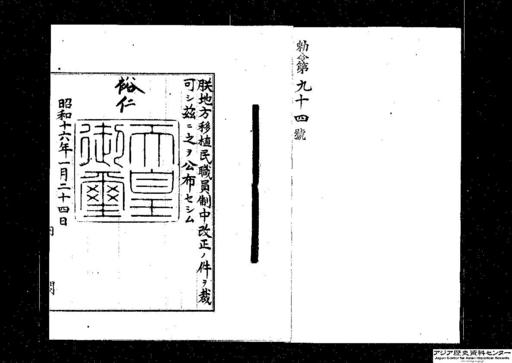 勅令第九十四號
朕地方移植民職員制中改正ノ件ヲ裁
可シ茲ニ之ヲ公布セシム
裕仁
天皇御璽
昭和十六年一月二十四日
アジア歴史資料センター
Japan Center for Asian Historical Records